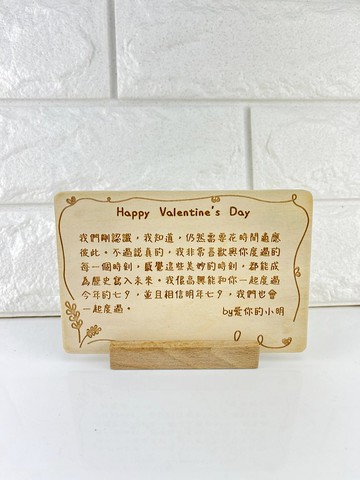 Happy Valentine's Day
我們剛認識，我知道，仍然需要花時間適應
彼此。不過認真的，我非常喜歡與你度過的
每一個時刻，感覺這些美妙的時刻，都能成
為歷史寫入未來。我很高興能和你一起度過
今年的七夕，並且相信明年七夕，我們也會
一起度過。
by愛你的小明